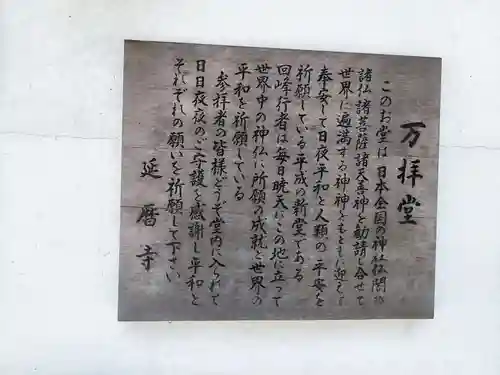 万拝堂
このお堂は日本全国の神社仏閣の
諸仏諸菩薩諸天善神を勧請し合せて
世界に遍満する神神をもともに迎えて
奉安して日夜平和と人類の平安を
祈願している平成の新堂である
回峰行者は毎日暁天にこの地に立って
世界中の神仏に祈願の成就と世界の
平和を祈願している
参拝者の皆様どうぞ堂内に入られて
日日夜夜のご守護を感謝し平和と
それぞれの願いを祈願して下さい
延暦寺